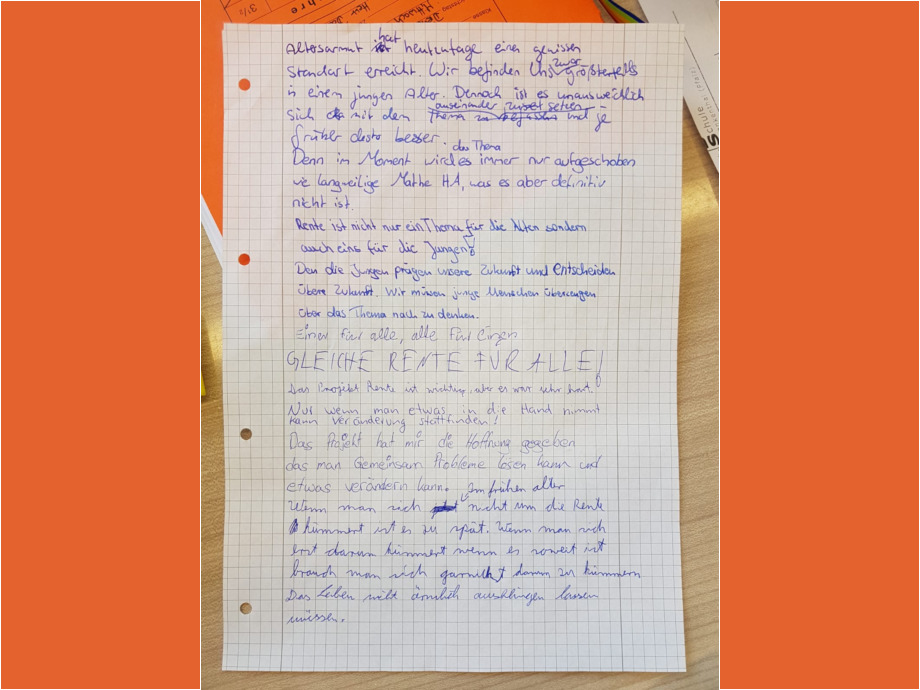 hre
3½
Klasse
Mittwoch
Schule
Altersarmut hat heutzutage einen gewissen
Standart erreicht. Wir befinden Uns zwar größtenteils
in einem jungen Alter. Dennoch ist es unausweichlich
sich mit dem Thema auseinander zusetzen und je
früher desto besser.
Denn im Moment wird das Thema immer nur aufgeschoben
wie langweilige Mathe HA, was es aber definitiv
nicht ist.
Rente ist nicht nur ein Thema für die Alten sondern
auch eins für die Jungen!
Den die jungen prägen unsere Zukunft und Entscheiden
übere Zukunft. Wir müssen junge Menschen überzeugen
über das Thema nach zu denken.
Einer für alle, alle für Einen
GLEICHE RENTE FÜR ALLE!
Das Projekt Rente ist wichtig, aber es war sehr hart.
Nur wenn man etwas in die Hand nimmt
kann veränderung stattfinden!
Das Projekt hat mir die Hoffnung gegeben
das man Gemeinsam Probleme lösen kann und
etwas verändern kann.
Wenn man sich im frühen alter nicht um die Rente
kümmert ist es zu spät. Wenn man sich
erst darum kümmert wenn es soweit ist
brauch man sich garnicht darum zu kümmern
Das Leben nicht ärmlich ausklingen lassen
müssen.